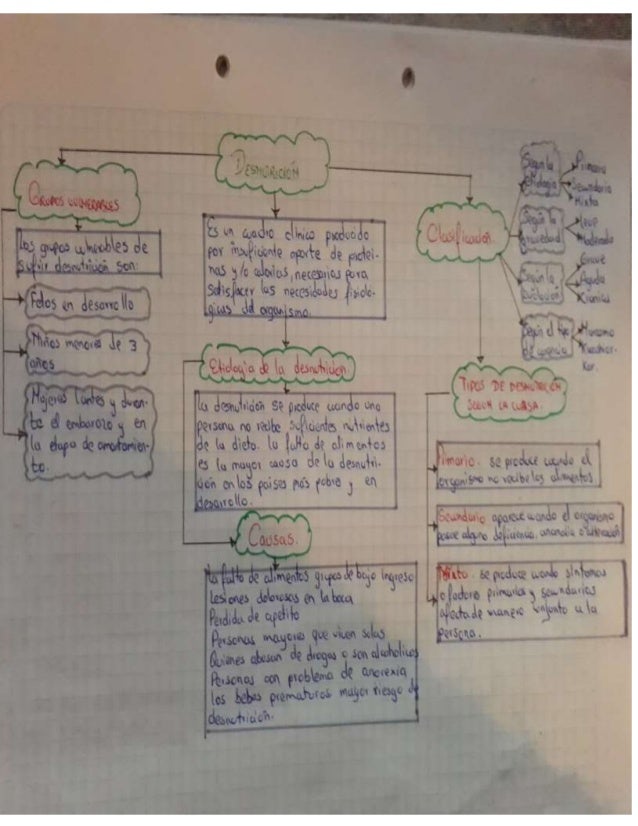 DESNUTRICIÓN
GRUPOS VULNERABLES
Los grupos vulnerables de
sufrir desnutrición son:
Fetos en desarrollo
Niños menores de 3
años
Mujeres (antes y duran-
te el embarazo y en
la etapa de amantamien-
to.
Es un cuadro clínico producido
por insuficiente aporte de protei-
nas y/o calorias, necesarias para
Satisfacer las necesidades fisioló-
gicas del organismo.
Etiología de la desnutrición
La desnutrición se produce cuando una
persona no recibe suficientes nutrientes
de la dieta. la falta de alimentos
es la mayor causa de la desnutri-
ción en los paises más pobre y en
desarrollo.
Causas.
La falta de alimentos grupos de bajo ingreso
Lesiones dolorosas en la boca
Perdida de apetito
Personas mayores que viven solas
Quienes abusan de drogas o son alcoholicos
Personas con problema de anorexia
los bebes prematuros mayor riesgo de
desnutrición.
Clasificación
Según la
etiología
Primaria
Secundaria
Mixta
Según la
gravedad
Leve
Moderada
Grave
Según la
evolución
Aguda
Crónica
Según el tipo
de carencia
Marasmo
Kwashior-
Kor.
TIPOS DE DESNUTRICIÓN
SEGÚN LA CAUSA.
Primario. se produce cuando el
organismo no recibe los alimentos
Secundario aparece cuando el organismo
posee alguna deficiencia, anomalia o alteración
Mixto. se produce cuando síntomas
o factores primarios y secundarios
afecta de manera conjunto a la
persona.